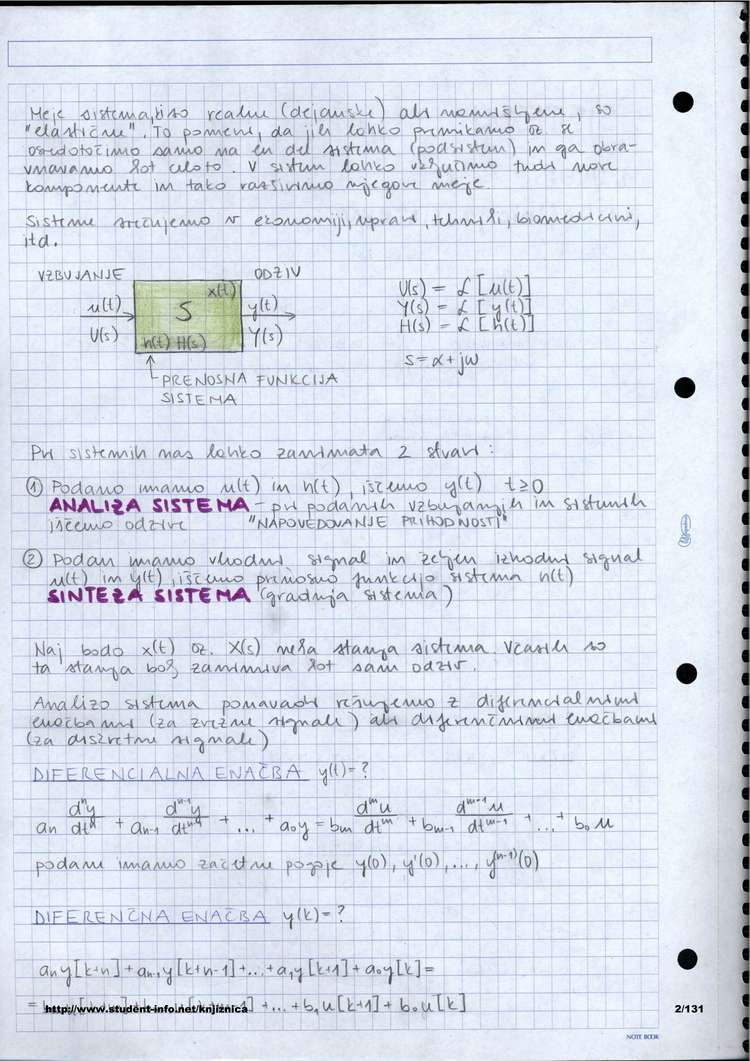 Meje sistema, ki so realne (dejanske) ali namišljene, so
"elastične". To pomeni, da jih lahko premikamo oz. se
osredotočimo samo na en del sistema (podsistem) in ga obra-
vnavamo kot celoto. V sistem lahko vključimo tudi nove
komponente in tako razširimo njegove meje
Sisteme srečujemo v ekonomiji, upravi, tehniki, biomedicini,
itd.
VZBUJANJE ODZIV
u(t) x(t) y(t)
S
U(s) h(t) H(s) Y(s)
PRENOSNA FUNKCIJA
SISTEMA
U(s) = ℒ [u(t)]
Y(s) = ℒ [y(t)]
H(s) = ℒ [h(t)]
s = α + jω
Pri sistemih nas lahko zanimata 2 stvari:
① Podano imamo u(t) in h(t), iščemo y(t) t≥0
ANALIZA SISTEMA - pri podanih vzbujanjih in sistemih
iščemo odzive "NAPOVEDOVANJE PRIHODNOSTI"
② Podan imamo vhodni signal in željen izhodni signal
u(t) in y(t), iščemo prenosno funkcijo sistema h(t)
SINTEZA SISTEMA (gradnja sistema)
Naj bodo x(t) oz. X(s) neka stanja sistema. Včasih so
ta stanja bolj zanimiva kot sam odziv.
Analizo sistema ponavadi rešujemo z diferencialnimi
enačbami (za zvezne signale) ali diferenčnimi enačbami
(za diskretne signale)
DIFERENCIALNA ENAČBA y(t)=?
aₙ dⁿy/dtⁿ + aₙ₋₁ dⁿ⁻¹y/dtⁿ⁻¹ + ... + a₀y = bₘ dᵐu/dtᵐ + bₘ₋₁ dᵐ⁻¹u/dtᵐ⁻¹ + ... + b₀u
podane imamo začetne pogoje y(0), y'(0), ..., y⁽ⁿ⁻¹⁾(0)
DIFERENČNA ENAČBA y(k)=?
aₙy[k+n] + aₙ₋₁y[k+n-1] + ... + a₁y[k+1] + a₀y[k] =
= + ... + b₁u[k+1] + b₀u[k]
http://www.student-info.net/knjiznica
2/131
NOTE BOOK